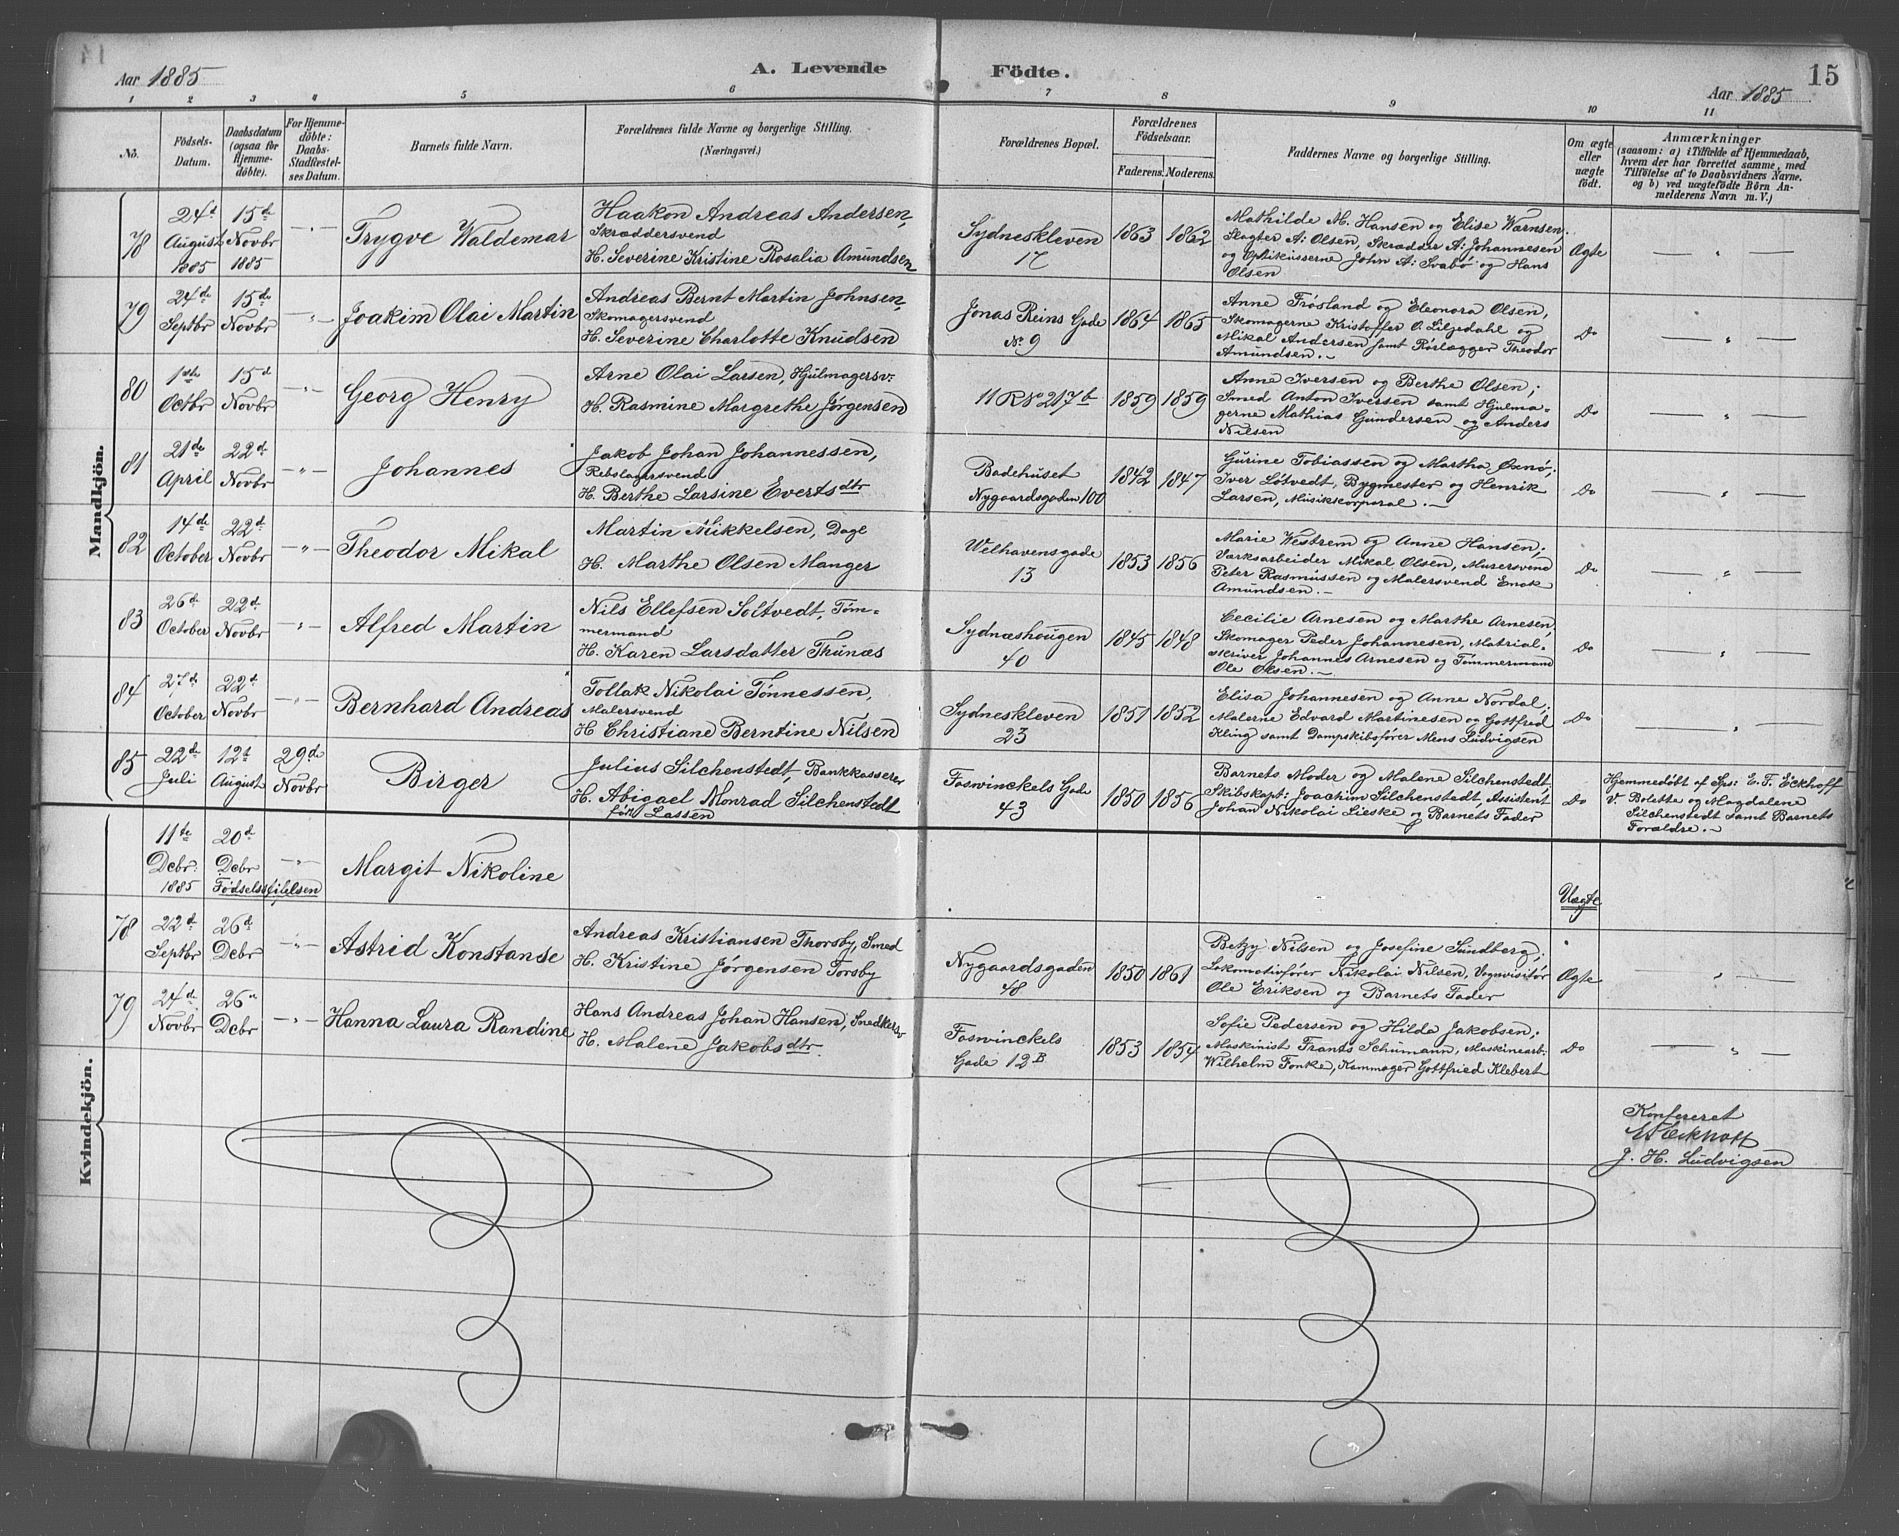 Aar 1885
A. Levende Födte.
15
Aar 1885
1 2 3 4 5 6 7 8 9 10 11
No.
Födsels-Datum.
Daabsdatum (ogsaa for Hjemmedöbte).
For Hjemmedöbte: Daabs-Stadfestelses Datum.
Barnets fulde Navn.
Forældrenes fulde Navne og borgerlige Stilling.
(Næringsvei.)
Forældrenes Bopæl.
Forældrenes Födselsaar.
Faderens. Moderens.
Faddernes Navne og borgerlige Stilling.
Om ægte eller uægte födt.
Anmærkninger
(saasom: a) i Tilfælde af Hjemmedaab, hvem der har forrettet samme, med Tilföielse af to Daabsvidners Navne. og b) ved uægtefödte Börn Anmelderens Navn m. V.)
Mandkjön.
78
24d August 1885
15de Novbr 1885
-"-
Trygve Waldemar
Haakon Andreas Andersen,
Skræddersvend
H. Severine Kristine Rosalia Amundsen
Sydneskleven
17
1863 1862
Mathilde M. Hansen og Elise Wærnsen.
Slagter A: Olsen, Skrædder A: Johannesen
og Optikusserne John A: Svabö og Hans
Olsen
Ægte
— " —
79
24de Septbr
15de Novbr
-"-
Joakim Olai Martin
Andreas Bernt Martin Johnsen,
Skomagersvend
H. Severine Charlotte Knudsen
Jonas Reins Gade
No 9
1864 1865
Anne Frösland og Eleonora Olsen,
Skomagerne Kristoffer O. Liljedahl og
Mikal Andersen samt Rörlægger Theodor
Amundsen.-
Do
— " —
80
1ste Octbr
15d Novbr
-"-
Georg Henry
Arne Olai Larsen, Hjulmagersv:
H. Rasmine Margrethe Jørgensen
11 R No 217b
1859 1859
Anne Iversen og Berthe Olsen;
Smed Anton Iversen samt Hjulma-
gerne Mathias Gundersen og Anders
Nilsen
Do
— " —
81
21de April
22de Novbr
-"-
Johannes
Jakob Johan Johannessen,
Rebslagersvend
H. Berthe Larsine Evertsdtr
Badehuset
Nygaardsgaden 100
1842 1847
Gurine Tobiassen og Martha Øxnö;
Iver Løtvedt, Bygmester og Henrik
Larsen, Musikkorporal.-
Do
— " —
82
14de October
22d Novbr
-"-
Theodor Mikal
Martin Mikkelsen, Dage
H. Marthe Olsen Manger
Welhavensgade
13
1853 1856
Marie Westrem og Anne Hansen;
Værksarbeider Mikal Olsen, Murersvend
Peter Rasmussen og Malersvend
Amundsen.-
Do
— " —
83
26de October
22d Novbr
-"-
Alfred Martin
Nils Ellefsen Soltvedt, Töm-
mermand
H. Karen Larsdatter Thunæs
Sydnæshougen
40
1845 1848
Cecilie Arnesen og Marthe Arnesen,
Skomager Peder Johannesen, Matrial-
skriver Johannes Arnesen og Tömmermand
Ole Olsen.-
Do
— " —
84
27d. October
22d Novbr
-"-
Bernhard Andreas
Tollak Nikolai Tønnessen,
Malersvend
H Christiane Berntine Nilsen
Sydneskleven
23
1851 1852
Elisa Johannesen og Anne Nordal;
Malerne Edvard Martinesen og Gottfred
Kling samt Dampskibsförer Mens Ludvigsen
Do
— " —
85
22de Juli
12t August
29d Novbr
Birger
Julius Silchenstedt, Bankkasserer
H. Abigael Monrad Silchenstedt
föd Lassen
Foswinckels Gade
43
1850 1856
Barnets Moder og Malene Silchenstedt,
Skibskapt: Joachim Silchenstedt, Assistent
Johan Nikolai Lieske og Barnets Fader
Do
Hjemmedöbt af Sps: E. F. Eckhoff
V. Bolette og Magdalene
Silchenstedt samt Barnets
Forældre.-
Kvindekjön.
11te Dcbr. 1885
20d Dcbr
-"-
Födselsstiftelsen
Margit Nikoline
Uægte
78
22d Septbr
26d Dcbr
-"-
Astrid Konstanse
Andreas Kristiansen Thorsby, Smed
H. Kristine Jørgensen Torsby
Nygaardsgaden
48
1850 1861
Betzy Nilsen og Josefine Sundberg;
Lokomotivförer Nikolai Nilsen, Vognvisitör
Ole Eriksen og Barnets Fader
Ægte
— " —
79
24de Novbr
26d Dcbr
-"-
Hanna Laura Randine
Hans Andreas Johan Hansen, Snedkersv
H. Malene Jakobsdtr.
Foswinckels
Gade 12B
1853 1854
Sofie Pedersen og Hilda Jakobsen;
Maskinist Frants Schumann, Maskinearb.
Wilhelm Fonke, Kammager Gottfried Klebert
Do
— " —
Konfereret
E F Eckhoff
J. H. Ludvigsen